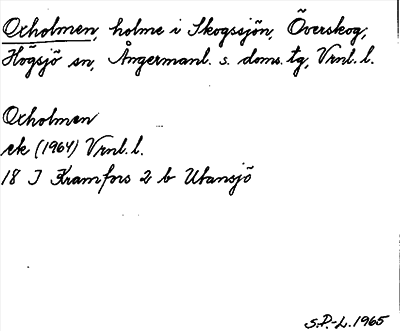 Oxholmen, holme i Skogssjön, Överskog,
Högsjö sn, Ångermanl. s. doms. tg, Vrnl. l.
Oxholmen
ek (1964) Vrnl. l.
18 J Kramfors 2 b Utansjö
S.P.-L. 1965